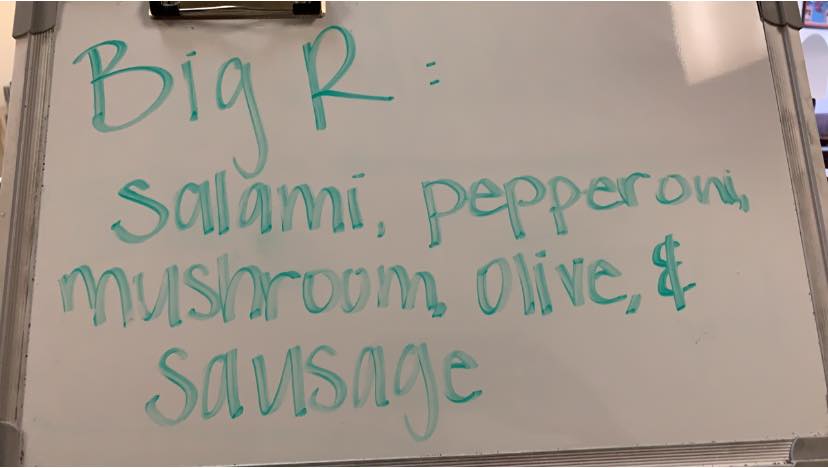 Big R:
salami, pepperoni,
mushroom, olive, &
sausage